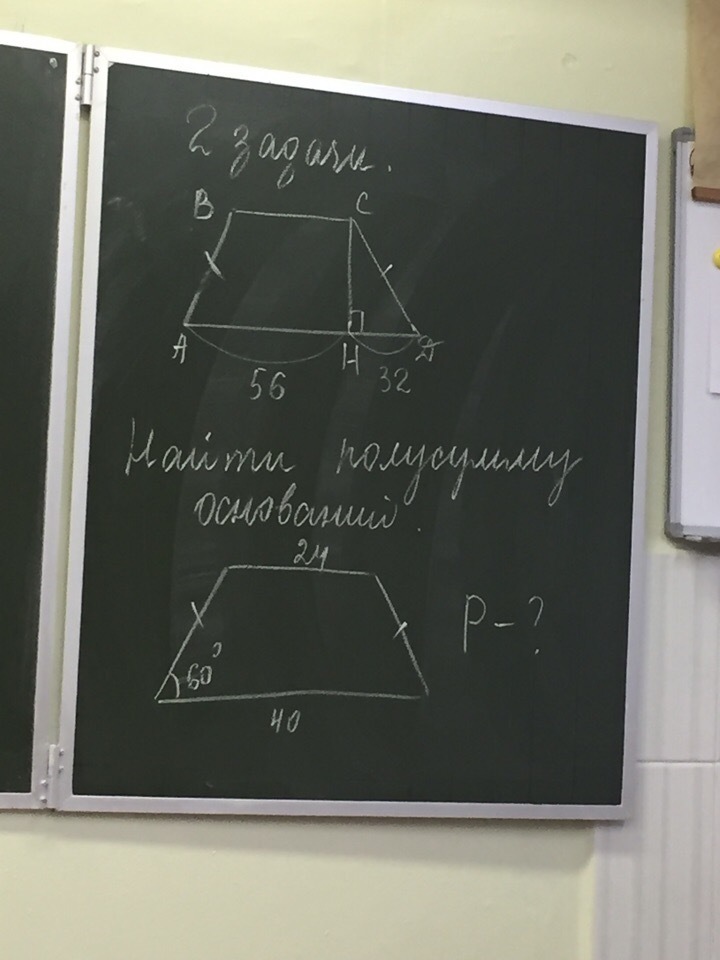 2 задачи.
В С
А Н Д
56 32
Найти полусумму
оснований.
24
P - ?
60°
40